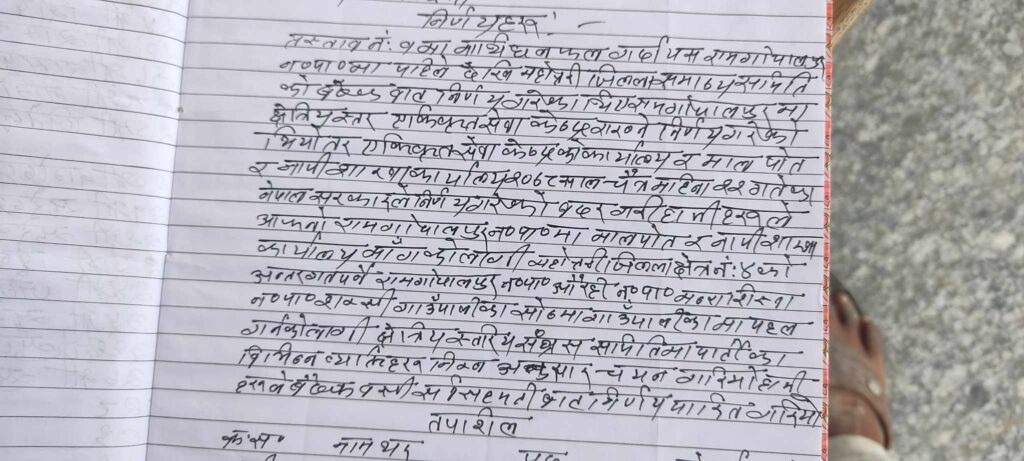 निर्णयहरु :-
प्रस्ताव नं: १ मा माथि छलफल गर्दा यस रामगोपालपुर
न०पा०मा पहिले देखि महोत्तरी जिल्ला समन्वय समिति
को बैठक बाट निर्णय गरेका थिए रामगोपालपुर मा
क्षेत्रियस्तर एकिकृत सेवा केन्द्र राख्ने निर्णय गरेको
थियो तर एकिकृत सेवा केन्द्र को कार्यालय र माल पोत
र नापी शाखा कार्यालय २०६८ साल चैत्र महिना २२ गतेका
नेपाल सरकारले निर्णय गरेको बदर गरी हामीहरुले
आफ्नो रामगोपालपुर न०पा०मा मालपोत र नापी शाखा
कार्यालय माँगको लागी महोत्तरी जिल्ला क्षेत्र नं: ४ को
अन्तरगत पर्ने रामगोपालपुर न०पा० औरही न०पा० मनरा शिसवा
न०पा० र सम्सी गाउँपालीका सोनमा गाउँपालीका मा पहल
गर्नको लागी क्षेत्रियस्तरिय संघर्ष समितिमा पार्टीका
विभिन्न व्यक्तिहरु निम्न अनुसार चयन गरियो हामी-
हरुले बैठक बसी सर्व सहमती बाट निर्णय पारित गरियो
तपाशिल
क्र.स. नाम थर पद